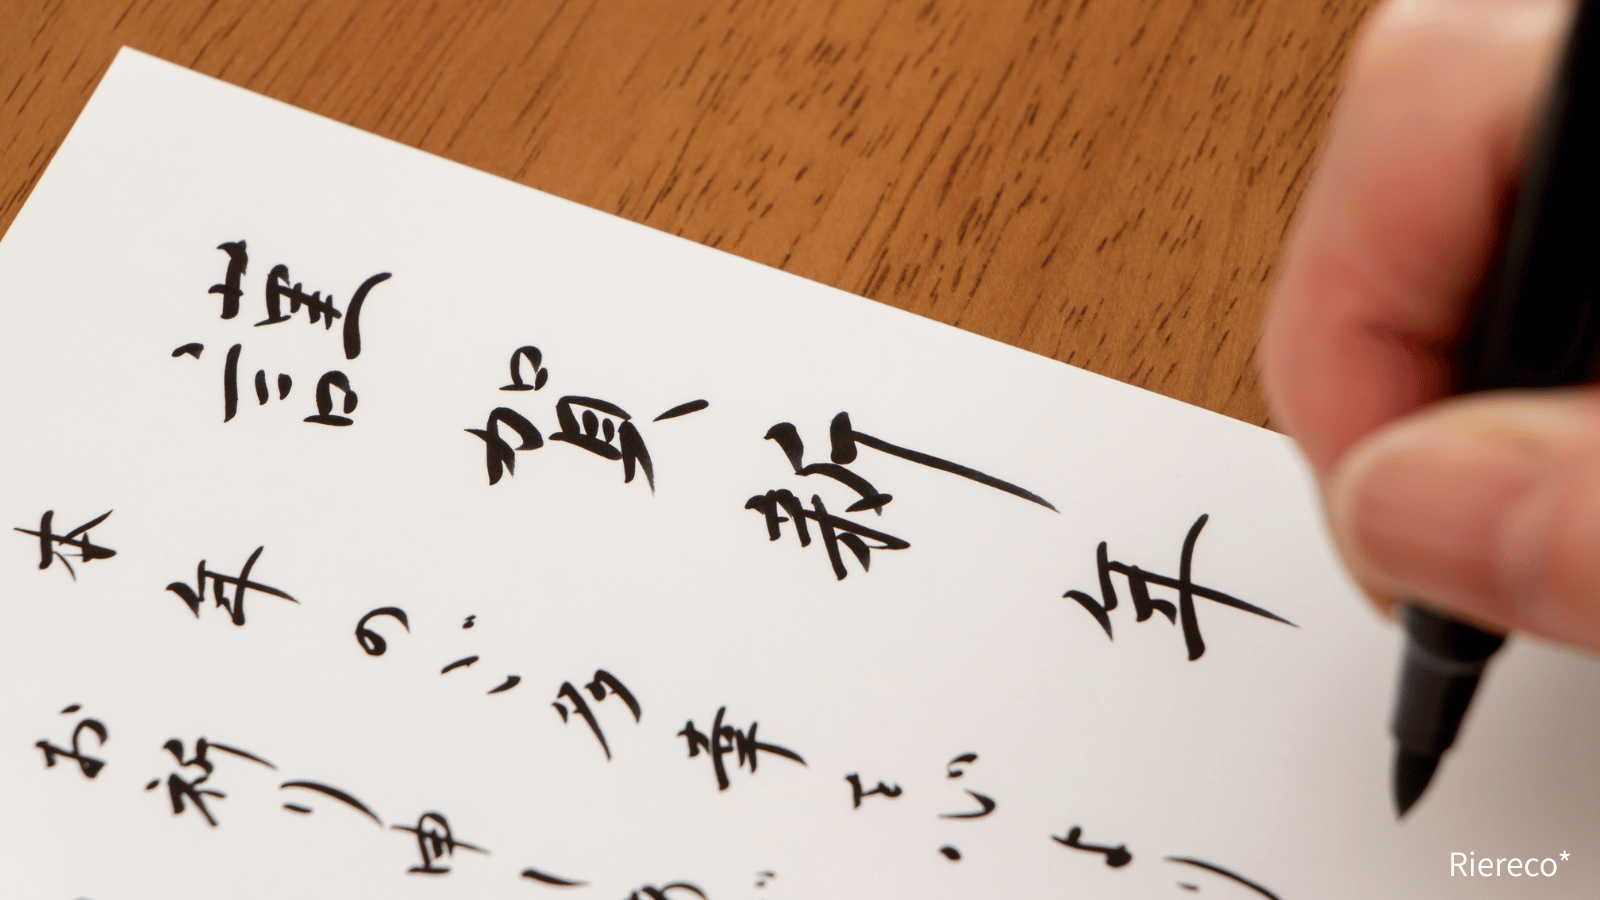 謹賀新年
本年のご多幸を心より
お祈り申し
Riereco*